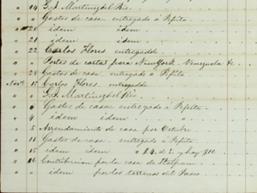 " 14 G. L. Martinez del Rio.
" " Gastos de casa entregado á Pepito
" 20 idem idem
" 21 idem idem
" 22 Carlos Flores entregado
" " Portes de cartas para New York - Venezuela &c
" 28 Gastos de casa entregado á Pepito
Novr. 1 Carlos Flores, entregado
Martinez del Rio
" " Gastos de casa entregado á Pepito
" 4 idem idem
" 5 Arrendamiento de casa por Octubre
" 11 Gastos de casa entregado á Pepito
" 15 idem idem
" 16 Contribucion por la casa de
" " idem por los terrenos del Paseo